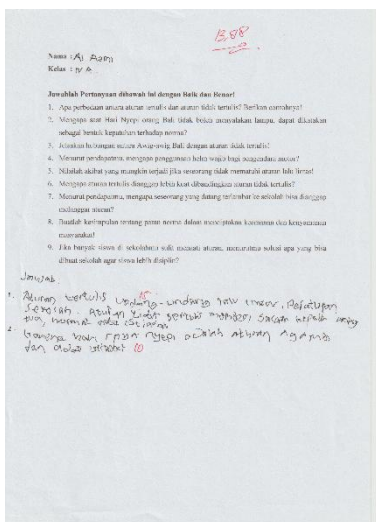 13,88
Nama : Al Azmi
Kelas : IV A
Jawablah Pertanyaan dibawah ini dengan Baik dan Benar!
1. Apa perbedaan antara aturan tertulis dan aturan tidak tertulis? Berikan contohnya!
2. Mengapa saat Hari Nyepi orang Bali tidak boleh menyalakan lampu, dapat dikatakan
sebagai bentuk kepatuhan terhadap norma?
3. Jelaskan hubungan antara Awig-awig Bali dengan aturan tidak tertulis!
4. Menurut pendapatmu, mengapa penggunaan helm wajib bagi pengendara motor?
5. Nilailah akibat yang mungkin terjadi jika seseorang tidak mematuhi aturan lalu lintas!
6. Mengapa aturan tertulis dianggap lebih kuat dibandingkan aturan tidak tertulis?
7. Menurut pendapatmu, mengapa seseorang yang datang terlambat ke sekolah bisa dianggap
melanggar norma?
8. Buatlah kesimpulan tentang peran norma dalam menciptakan keamanan dan kenyamanan
masyarakat!
9. Jika banyak siswa di sekolahmu sulit menaati aturan, menurutmu solusi apa yang bisa
dibuat sekolah agar siswa lebih disiplin?
Jawab
1. Aturan tertulis undang-undang lalu lintas, Peraturan
sekolah. Aturan tidak tertulis memberi salam kepada orang
tua, hormat pada
2. karena hari raya nyepi adalah aturan Agama
dan adat